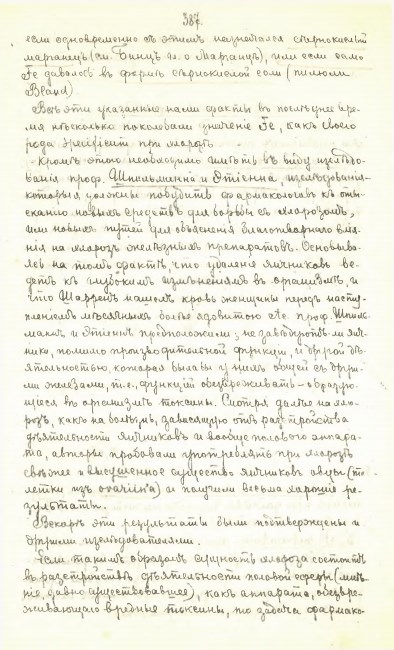 387.
если одновременно съ этимъ назначался сѣрнокислый
марганецъ (см. Бинцъ о Марганцѣ), или если само
Fe давалось въ формѣ сѣрнокислой соли (пилюли
Bland)
Всѣ эти указанные нами факты въ послѣднее вре-
мя нѣсколько поколебали значеніе Fe, какъ своего
рода specificum при хлорозѣ.
Кромѣ этого необходимо имѣть въ виду изслѣдо-
ванія проф. Шпильмана и Этіенна, изслѣдованія
которыя должны побудить фармакологовъ къ оты-
сканію новыхъ средствъ для борьбы съ хлорозомъ,
или новыхъ путей для объясненія благотворнаго влія-
нія на хлорозъ желѣзныхъ препаратовъ. Основыва-
ясь на томъ фактѣ, что удаленіе яичниковъ ве-
детъ къ глубокимъ измѣненіямъ въ организмѣ, и
что Шарренъ нашелъ кровь женщины передъ насту-
пленіемъ мѣсячныхъ болѣе ядовитою etc. проф. Шпиль-
манъ и Этіеннъ предположили, не завѣдуютъ-ли яич-
ники, помимо производительной функціи, и другой дѣ-
ятельностью, которая была бы у нихъ общей съ други-
ми железами, т.е. функціей обезвреживать образую-
щіеся въ организмѣ токсины. Смотря далѣе на хло-
розъ, какъ на болѣзнь, зависящую отъ разстройства
дѣятельности яичниковъ и вообще полового аппара-
та, авторы пробовали употреблять при хлорозѣ
свѣжее и высушенное существо яичниковъ овцы (таб-
летки изъ ovariina) и получили весьма хорошіе ре-
зультаты.
Вскорѣ эти результаты были подтверждены и
другими изслѣдователями.
Если такимъ образомъ сущность хлороза состоитъ
въ разстройствѣ дѣятельности половой сферы (мнѣ-
ніе, давно существовавшее), какъ аппарата, обезвре-
живающаго вредные токсины, то задача фармако-